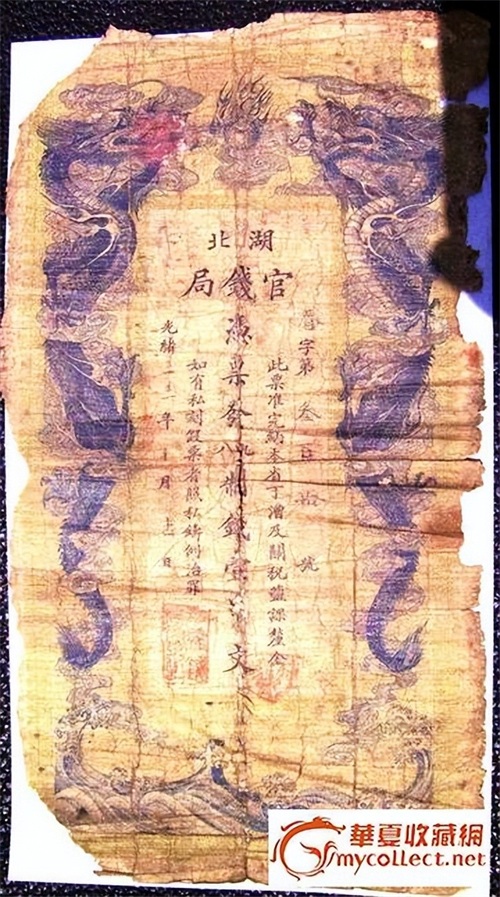 湖北
官錢局
字第叁百拾號
此票准完納本省丁漕及關稅鹽課釐金
憑票發九八制錢壹串文
如有私刻假票者照私鑄例治罪
光緒年月日
華夏收藏網
mycollect.net